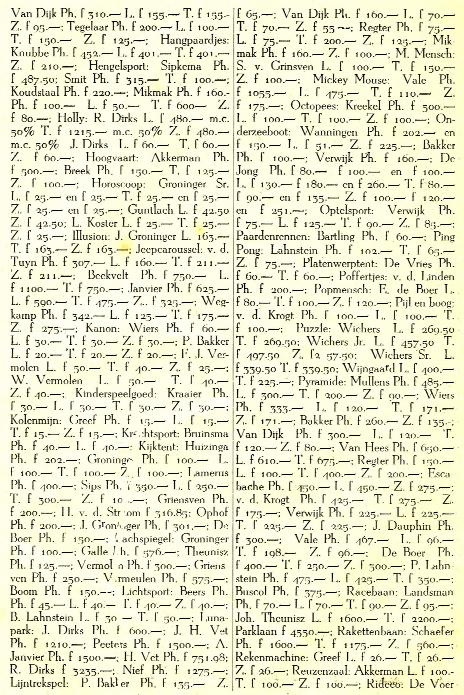 Van Dijk Ph. f 310.— L. f 155.— T. f 155.-
Z. f 95.—; Tegelaar Ph. f 200.— L. f 100.—
T. f 150.— Z. f 125.—; Hangpaardjes:
Knubbe Ph. f 452.— L. f 401.— T. f 401.—
Z. f 210.—; Hengelsport: Sipkema Ph.
f 487.50; Smit Ph. f 315.— T. f 100.—;
Koudstaal Ph. f 220.—; Mikmak Ph. f 160.-
Ph. f 100.— L. f 50.— T. f 600— Z.
f 80.—; Holly: R. Dirks L. f 480.— m.c.
50% T. f 1215.— m.c. 50% Z. f 480.—
m.c. 50% J. Dirks L. f 60.— T. f 60.—
Z. f 60.—; Hoogvaart: Akkerman Ph.
f 500.—; Breek Ph. f 150.— T. f 125.—
Z. f 100.—; Horoscoop: Groninger Sr.
L. f 25.— en f 25.— T. f 25.— en f 25.—
Z. f 25.— en f 25.—; Guntlach L. f 42.50
Z. f 42.50; L. Koster L. f 25.— T. f 25.—
Z. f 25.—; Illusion: J. Groninger L. f 163.—
T. f 163.— Z. f 163.—; Jeepcaroussel: v. d.
Tuyn Ph. f 307.— L. f 160.— T. f 211.—
Z. f 211.—; Beekvelt Ph. f 750.— L.
f 1100.— T. f 750.—; Janvier Ph. f 625.—
L. f 590.— T. f 475.— Z. f 325.—; Weg-
kamp Ph. f 342.— L. f 125.— T. f 175.—
Z. f 275.—; Kanon: Wiers Ph. f 60.—
L. f 30.— T. f 30.— Z. f 30.—; P. Bakker
L. f 20.— T. f 20.— Z. f 20.—; F. J. Ver-
molen L. f 50.— T. f 40.— Z. f 25.—;
W. Vermolen L. f 50.— T. f 40.—
Z. f 40.—; Kinderspeelgoed: Kraaier Ph.
f 30.— L. f 30.— T. f 30.— Z. f 30.—;
Kolenmijn: Greef Ph. f 15.— L. f 15.—
T. f 15.— Z. f 15.—; Krachtsport: Bruinsma
Ph. f 40.— L. f 40.—; Kijktent: Huizinga
Ph. f 202.—; Groninger Ph. f 100.— L.
f 100.— T. f 100.— Z. f 100.—; Lamerus
Ph. f 400.—; Sips Ph. f 350.— L. f 250.—
T. f 300.— Z. f .—; Griensven Ph.
f 200.—; H. v. d. Stroom f 316.85; Ophof
Ph. f 200.—; J. Groninger Ph. f 301.—; De
Boer Ph. f 150.—; Lachspiegel: Groninger
Ph. f 100.—; Galle Ph. f 576.—; Theunisz
Ph. f 125.—; Vermolen Ph. f 300.—; Griens
ven Ph. f 250.—; Vermeulen Ph. f 575.—;
Boom Ph. f 150.—; Lichtsport: Beers Ph.
Ph. f 45.— L. f 40.— T. f 40.— Z. f 40.—;
B. Lahnstein L. f 30 — T. f 50.—; Luna-
park: J. Dirks Ph. f 600.—; J. H. Vet
Ph. f 1210.—; Peeters Ph. f 1500.—; A.
Janvier Ph. f 1500.—; H. Vet Ph. f 751.98;
R. Dirks f 3235.—; Nief Ph. f 1275.—;
Lijntrekspel: P. Bakker Ph. f 135.— Z.
f 65.—; Van Dijk Ph. f 160.— L. f 70.—
T. f 70.— Z. f 55 —; Regter Ph. f 75.—
L. f 75.— T. f 200.— Z. f 125.—; Mik-
mak Ph. f 160.— Z. f 100.—; M. Mensch:
S. v. Grinsven L. f 100.— T. f 150.—
Z. f 100.—; Mickey Mouse: Vale Ph.
f 1055.— L. f 475.— T. f 110.— Z.
f 175.—; Octopees: Kreekel Ph. f 500.—
L. f 100.— T. f 100.— Z. f 100.—; On-
derzeeboot: Wanningen Ph. f 202.— en
f 150.— L. f 51.— Z. f 225.—; Bakker
Ph. f 100.—; Verwijk Ph. f 160.—; De
Jong Ph. f 80.— f 100.— en f 100.—
L. f 130.— f 180.— en f 260.— T. f 80.—
f 90.— en f 135.— Z. f 100.— f 120.—
en f 251.—; Optelsport: Verwijk Ph.
f 75.— L. f 125.— T. f 125.— Z. f 85.—;
Paardenrennen: Bartling Ph. f 60.—; Ping
Pong: Lahnstein Ph. f 102.— T. f 65.—
Z. f 75.—; Platenwerptent: De Vries Ph.
f 60.— T. f 60.—; Poffertjes: v. d. Linden
Ph. f 200.—; Popmensch: E. de Boer L.
f 80.— T. f 100.— Z. f 120.—; Pijl en boog:
v. d. Krogt Ph. f 100.— L. f 100.— T.
f 100.—; Puzzle: Wichers L. f 269.50
T. f 269.50; Wichers Jr. L. f 457.50 T.
f 497.50 Z. f 257.50; Wichers Sr. L.
f 339.50 T. f 339.50; Wijngaard L. f 400.—
T. f 225.—; Pyramide: Mullens Ph. f 485.—
L. f 300.— T. f 200.— Z. f 90.—; Wiers
Ph. f 333.— L. f 120.— T. f 171.—
Z. f 171.—; Bakker Ph. f 260.— Z. f 135.-;
Van Dijk Ph. f 300.— L. f 120.— T.
f 120.— Z. f 80.—; Van Hees Ph. f 650.—
L. f 610.— T. f 675.—; Regter Ph. f 150.—
L. f 100.— T. f 400.— Z. f 200.—; Esca
bache Ph. f 450.— L. f 450.— Z. f 275.—;
v. d. Krogt Ph. f 425.— T. f 275.— Z.
f 175.—; Verwijk Ph. f 225.— L. f 225.—
T. f 225.— Z. f 225.—; J. Dauphin Ph.
f 300.—; Vale Ph. f 467.— L. f 96.—
T. f 198.— Z. f 96.—; De Boer Ph.
f 400.— T. f 250.— Z. f 300.—; P. Lahn-
stein Ph. f 475.— L. f 425.— T. f 350.—;
Buscol Ph. f 375.—; Racebaan: Landsman
Ph. f 70.— L. f 70.— T. f 90.— Z. f 95.—;
Joh. Theunisz L. f 1600.— T. f 2200.—;
Parklaan f 4550.—; Rakettenbaan: Schaefer
Ph. f 1600.— T. f 1175.— Z. f 560.—;
Rekenmachine: Greef L. f 26.— T. f 26.—
Z. f 26.—; Reuzenzaal: Akkerman L. f 100.-
T. f 100.— Z. f 100.—; Rideeo: De Voer